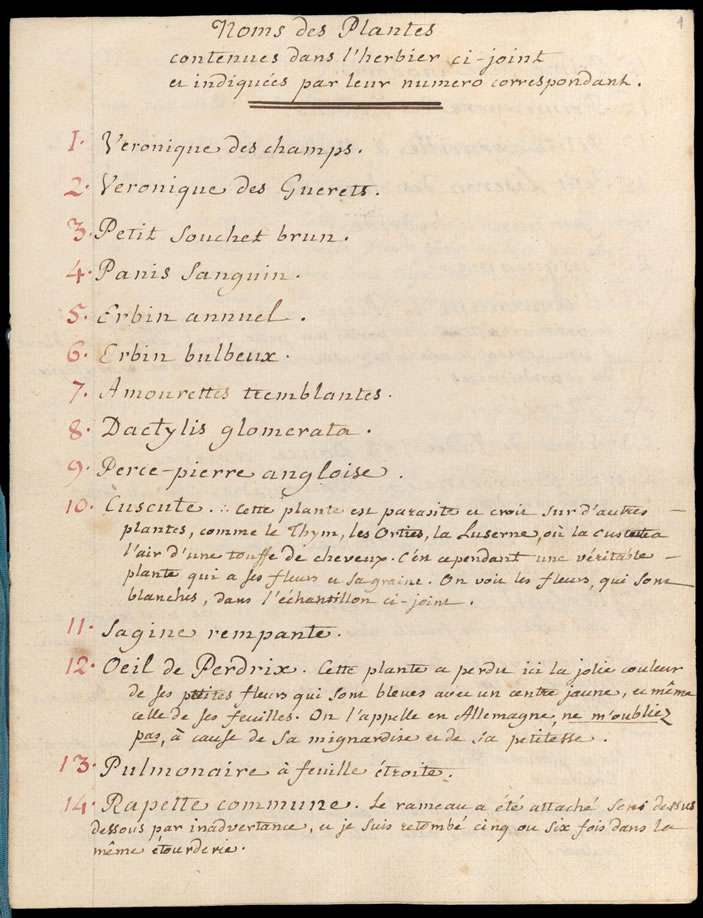 1
Noms des Plantes
contenues dans l'herbier ci-joint
et indiquées par leur numero correspondant.
1. Veronique des champs.
2. Veronique des Guerets.
3. Petit Souchet brun.
4. Panis Sanguin.
5. Erbin annuel.
6. Erbin bulbeux.
7. Amourettes tremblantes.
8. Dactylis glomerata.
9. Perce-pierre angloise.
10. Cuscute. Cette plante est parasite et croit sur d'autres
plantes, comme le Thym, les Orties, la Luserne, où la
l'air d'une touffe de cheveux. C'est cependant une véritable
plante qui a ses fleurs et sa graine. On voit les fleurs, qui sont
blanches, dans l'échantillon ci-joint.
11. Sagine rempante.
12. Oeil de Perdrix. Cette plante a perdu ici la jolie couleur
de ses petites fleurs qui sont bleues avec un centre jaune, et même
celle de ses feuilles. On l'appelle en Allemagne, ne m'oubliez
pas, à cause de sa mignardise et de sa petitesse.
13. Pulmonaire à feuille étroite.
14. Rapette commune. Le rameau a été attaché sens dessus
dessous par inadvertance, et je suis retombé cinq ou six fois dans la
même étourderie.